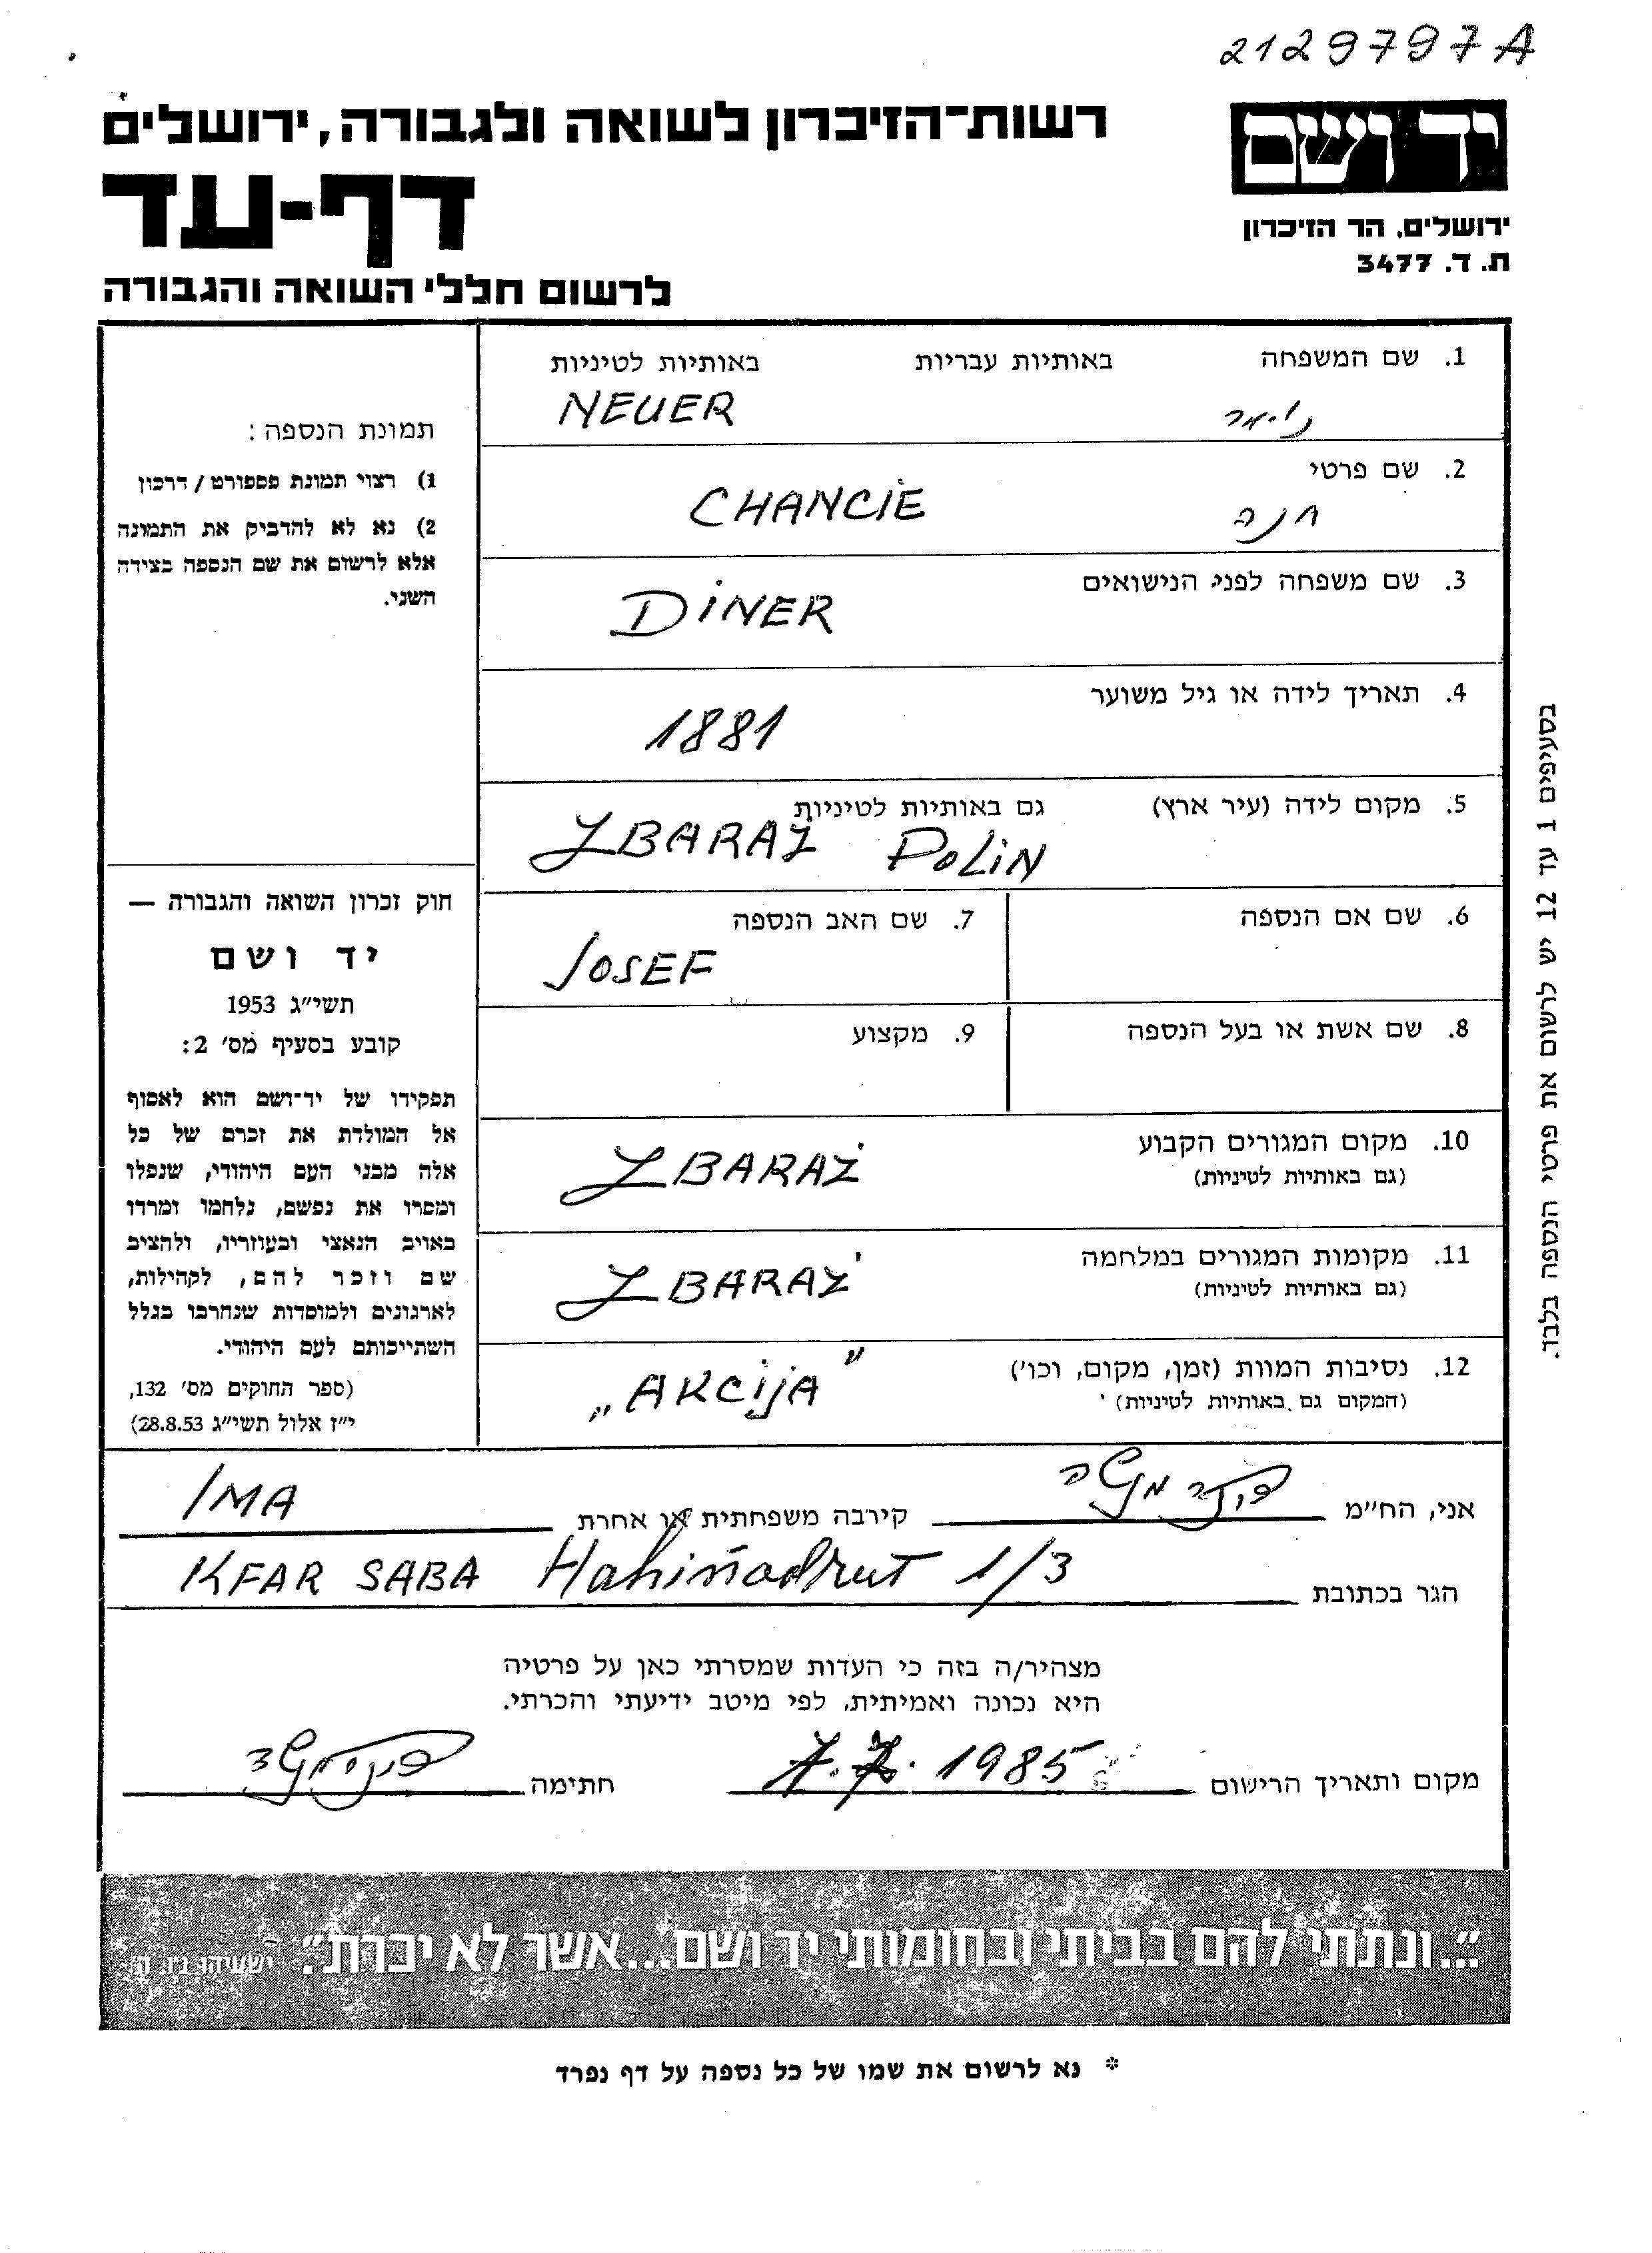 2129797A
רשות-הזיכרון לשואה ולגבורה, ירושלים
יד ושם
דף-עד
ירושלים, הר הזיכרון
ת. ד. 3477
לרשום חללי השואה והגבורה
1. שם המשפחה באותיות עבריות באותיות לטיניות
NEUER
2. שם פרטי
חנה CHANCIE
3. שם משפחה לפני הנישואים
DINER
4. תאריך לידה או גיל משוער
1881
5. מקום לידה (עיר ארץ) גם באותיות לטיניות
ZBARAŻ POLIN
6. שם אם הנספה 7. שם האב הנספה
JOSEF
8. שם אשת או בעל הנספה 9. מקצוע
10. מקום המגורים הקבוע
(גם באותיות לטיניות)
ZBARAŻ
11. מקומות המגורים במלחמה
(גם באותיות לטיניות)
ZBARAŻ
12. נסיבות המוות (זמן, מקום, וכו')
(המקום גם באותיות לטיניות)
„AKCIJA"
תמונת הנספה:
1) רצוי תמונת פספורט / דרכון
2) נא לא להדביק את התמונה
אלא לרשום את שם הנספה בצידה
השני.
חוק זכרון השואה והגבורה —
יד ושם
תשי"ג 1953
קובע בסעיף מס' 2:
תפקידו של יד-ושם הוא לאסוף
אל המולדת את זכרם של כל
אלה מבני העם היהודי, שנפלו
ומסרו את נפשם, נלחמו ומרדו
באויב הנאצי ובעוזריו, ולהציב
שם וזכר להם, לקהילות,
לארגונים ולמוסדות שנחרבו בגלל
השתייכותם לעם היהודי.
(ספר החוקים מס' 132,
י"ז אלול תשי"ג 28.8.53)
בסעיפים 1 עד 12 יש לרשום את פרטי הנספה בלבד.
אני, הח"מ קירבה משפחתית או אחרת IMA
הגר בכתובת KFAR SABA Hahistadrut 1/3
מצהיר/ה בזה כי העדות שמסרתי כאן על פרטיה
היא נכונה ואמיתית, לפי מיטב ידיעתי והכרתי.
מקום ותאריך הרישום 7.7. 1985 חתימה
"...ונתתי להם בביתי ובחומותי יד ושם...אשר לא יכרת". ישעיהו נ"ו, ה'
* נא לרשום את שמו של כל נספה על דף נפרד